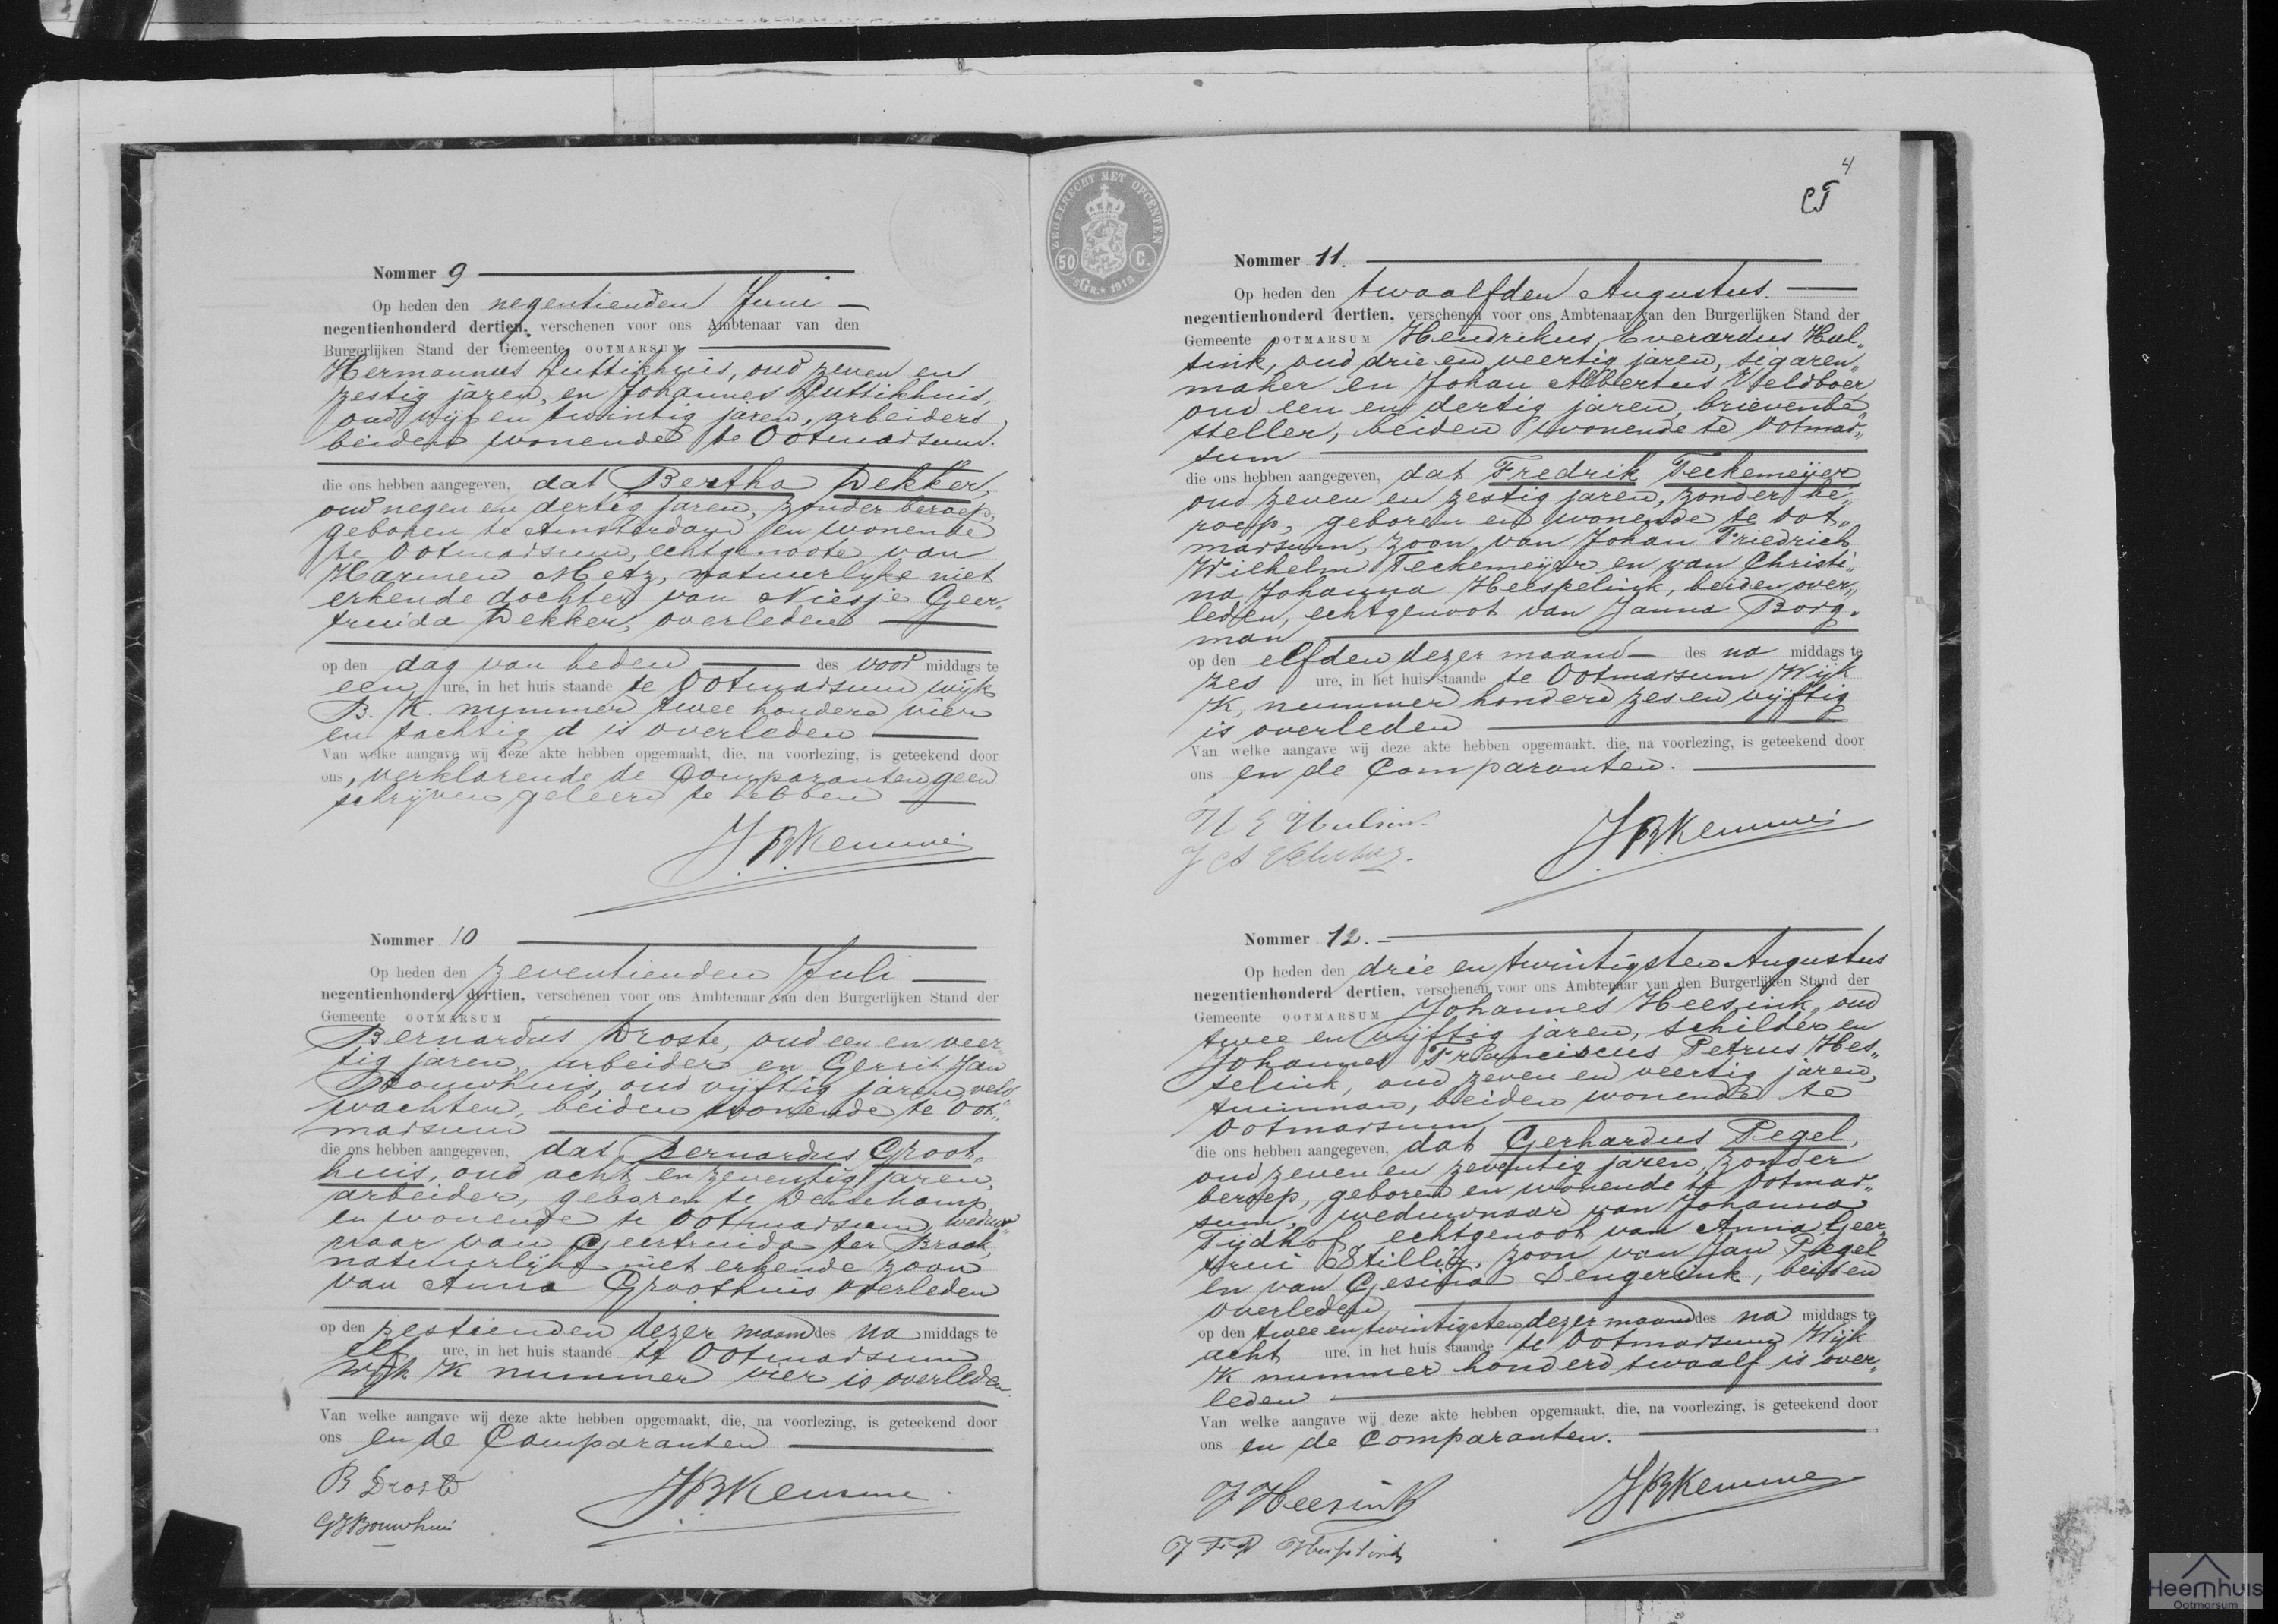 Nommer 9
Op heden den negentienden Juni
negentienhonderd dertien, verschenen voor ons Ambtenaar van den
Burgerlijken Stand der Gemeente OOTMARSUM
Hermannus Huttikhuis, oud zeven en
zestig jaren, en Johannes Huttikhuis,
oud vijf en twintig jaren, arbeiders
beiden wonende te Ootmarsum.
die ons hebben aangegeven, dat Bertha Dekker,
oud negen en dertig jaren, zonder beroep,
geboren te Amsterdam en wonende
te Ootmarsum, echtgenoote van
Harmen Metz, natuurlijke niet
erkende dochter van Niesje Geer„
truida Dekker, overleden
op den dag van heden des voor middags te
een ure, in het huis staande te Ootmarsum wijk
B. K. nummer twee honderd vier
en tachtig d is overleden
Van welke aangave wij deze akte hebben opgemaakt, die, na voorlezing, is geteekend door
ons, verklarende de Comparanten geen
schrijven geleerd te hebben
J.B.Kemme
Nommer 10
Op heden den zeventienden Juli
negentienhonderd dertien, verschenen voor ons Ambtenaar van den Burgerlijken Stand der
Gemeente OOTMARSUM
Bernardus Droste, oud een en veer„
tig jaren, arbeider en Gerrit Jan
Bouwhuis, oud vijftig jaren, veld„
wachter, beiden wonende te Oot„
marsum
die ons hebben aangegeven, dat Bernardus Groot„
huis, oud acht en zeventig jaren,
arbeider, geboren te Denekamp
en wonende te Ootmarsum, weduw„
naar van Geertruida ter Braak,
natuurlijke niet erkende zoon
van Anna Groothuis overleden
op den zestienden dezer maand des na middags te
elf ure, in het huis staande te Ootmarsum
wijk K nummer vier is overleden
Van welke aangave wij deze akte hebben opgemaakt, die, na voorlezing, is geteekend door
ons en de Comparanten
B Droste
GJBouwhuis
J.B.Kemme
4
ZEGELRECHT MET OPCENTEN
50 C.
'sGR. 1912
Nommer 11.
Op heden den twaalfden Augustus.
negentienhonderd dertien, verschenen voor ons Ambtenaar van den Burgerlijken Stand der
Gemeente OOTMARSUM Hendrikus Everardus Hul„
sink, oud drie en veertig jaren, sigaren„
maker en Johan Albertus Veldboer
oud een en dertig jaren, brievenbe„
steller, beiden wonende te Ootmar„
sum
die ons hebben aangegeven, dat Fredrik Teckemeijer
oud zeven en zestig jaren, zonder be„
roep, geboren en wonende te Oot„
marsum, zoon van Johan Friedrich
Wilhelm Teckemeijer en van Christi„
na Johanna Heespelink, beiden over„
leden, echtgenoot van Janna Borg„
man
op den elfden dezer maand des na middags te
zes ure, in het huis staande te Ootmarsum Wijk
K, nummer honderd zes en vijftig
is overleden
Van welke aangave wij deze akte hebben opgemaakt, die, na voorlezing, is geteekend door
ons en de Comparanten.
H E Hulsink
J.B.Kemme
Nommer 12.
Op heden den drie en twintigsten Augustus
negentienhonderd dertien, verschenen voor ons Ambtenaar van den Burgerlijken Stand der
Gemeente OOTMARSUM Johannes Heesink, oud
twee en vijftig jaren, schilder en
Johannes Franciscus Petrus Hes„
selink, oud zeven en veertig jaren,
tuinman, beiden wonende te
Ootmarsum
die ons hebben aangegeven, dat Gerhardus Pegel,
oud zeven en zeventig jaren, zonder
beroep, geboren en wonende te Ootmar„
sum, weduwnaar van Johanna
Tijdhof, echtgenoot van Anna Geer„
trui Stillig, zoon van Jan Pegel
en van Gesina Dengerink, beiden
overleden,
op den twee en twintigsten dezer maand des na middags te
acht ure, in het huis staande te Ootmarsum Wijk
K nummer honderd twaalf is over„
leden
Van welke aangave wij deze akte hebben opgemaakt, die, na voorlezing, is geteekend door
ons en de Comparanten.
J Heesink
J.B.Kemme
J F P Hesselink
Heemhuis
Ootmarsum